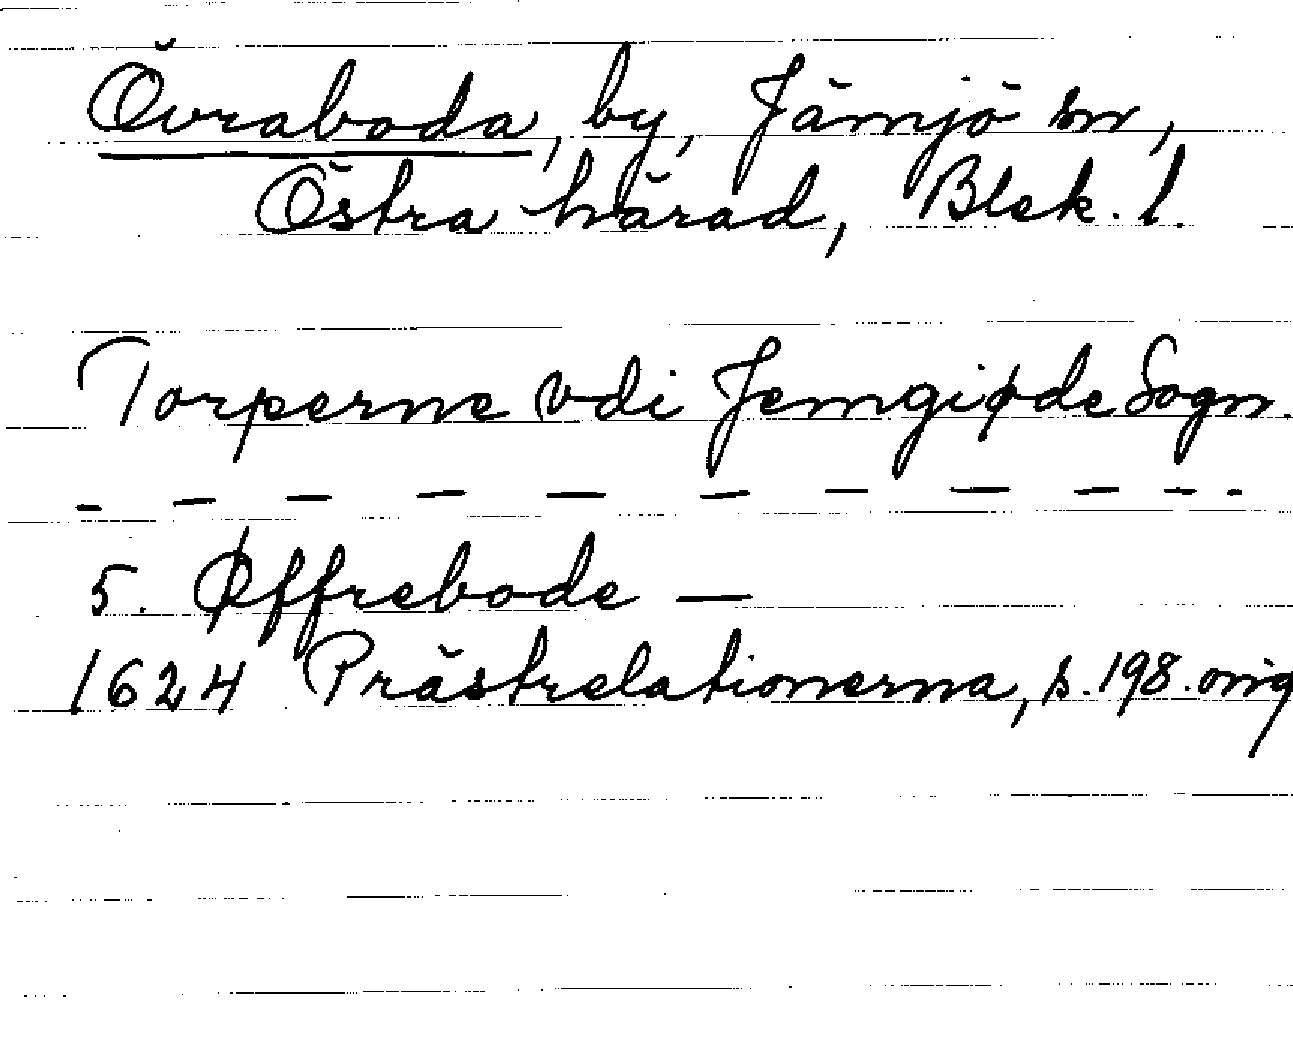 Övraboda, by, Jämjö sn,
Östra härad, Blek. l.
Torperne vdi Jemgiøde Sogn.
- - - - - - - - - - -
5. Øffrebode —
1624 Prästrelationerna, s. 198. orig